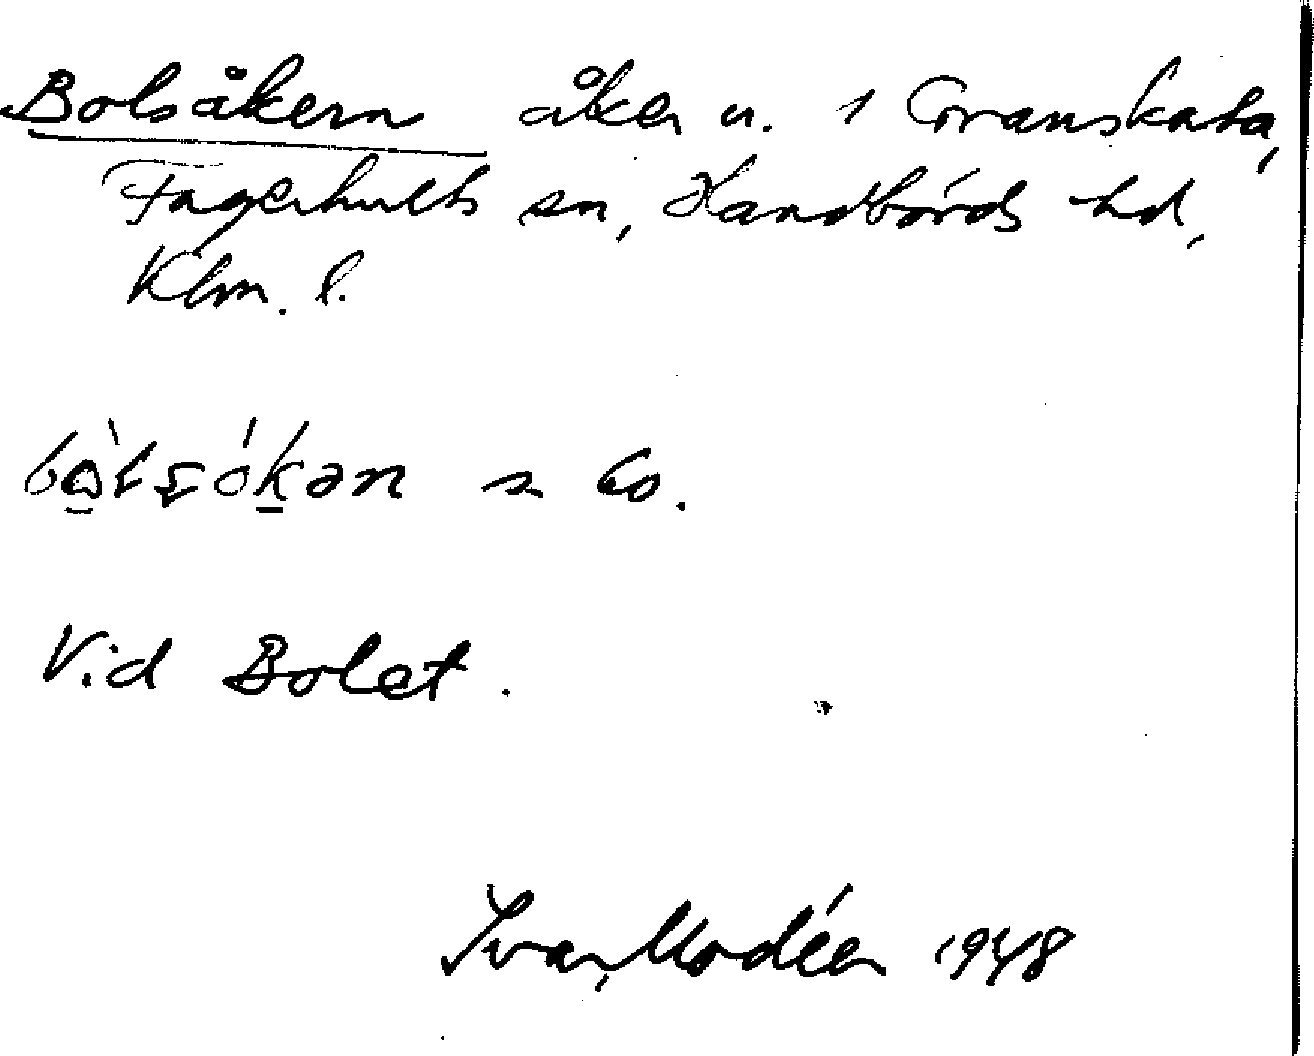 Bolsåkern åker n. 1 Granskata,
Fagerhults sn, Handbörds hd,
Klm. l.
Vid Bolet.
Ivar Modéer 1948